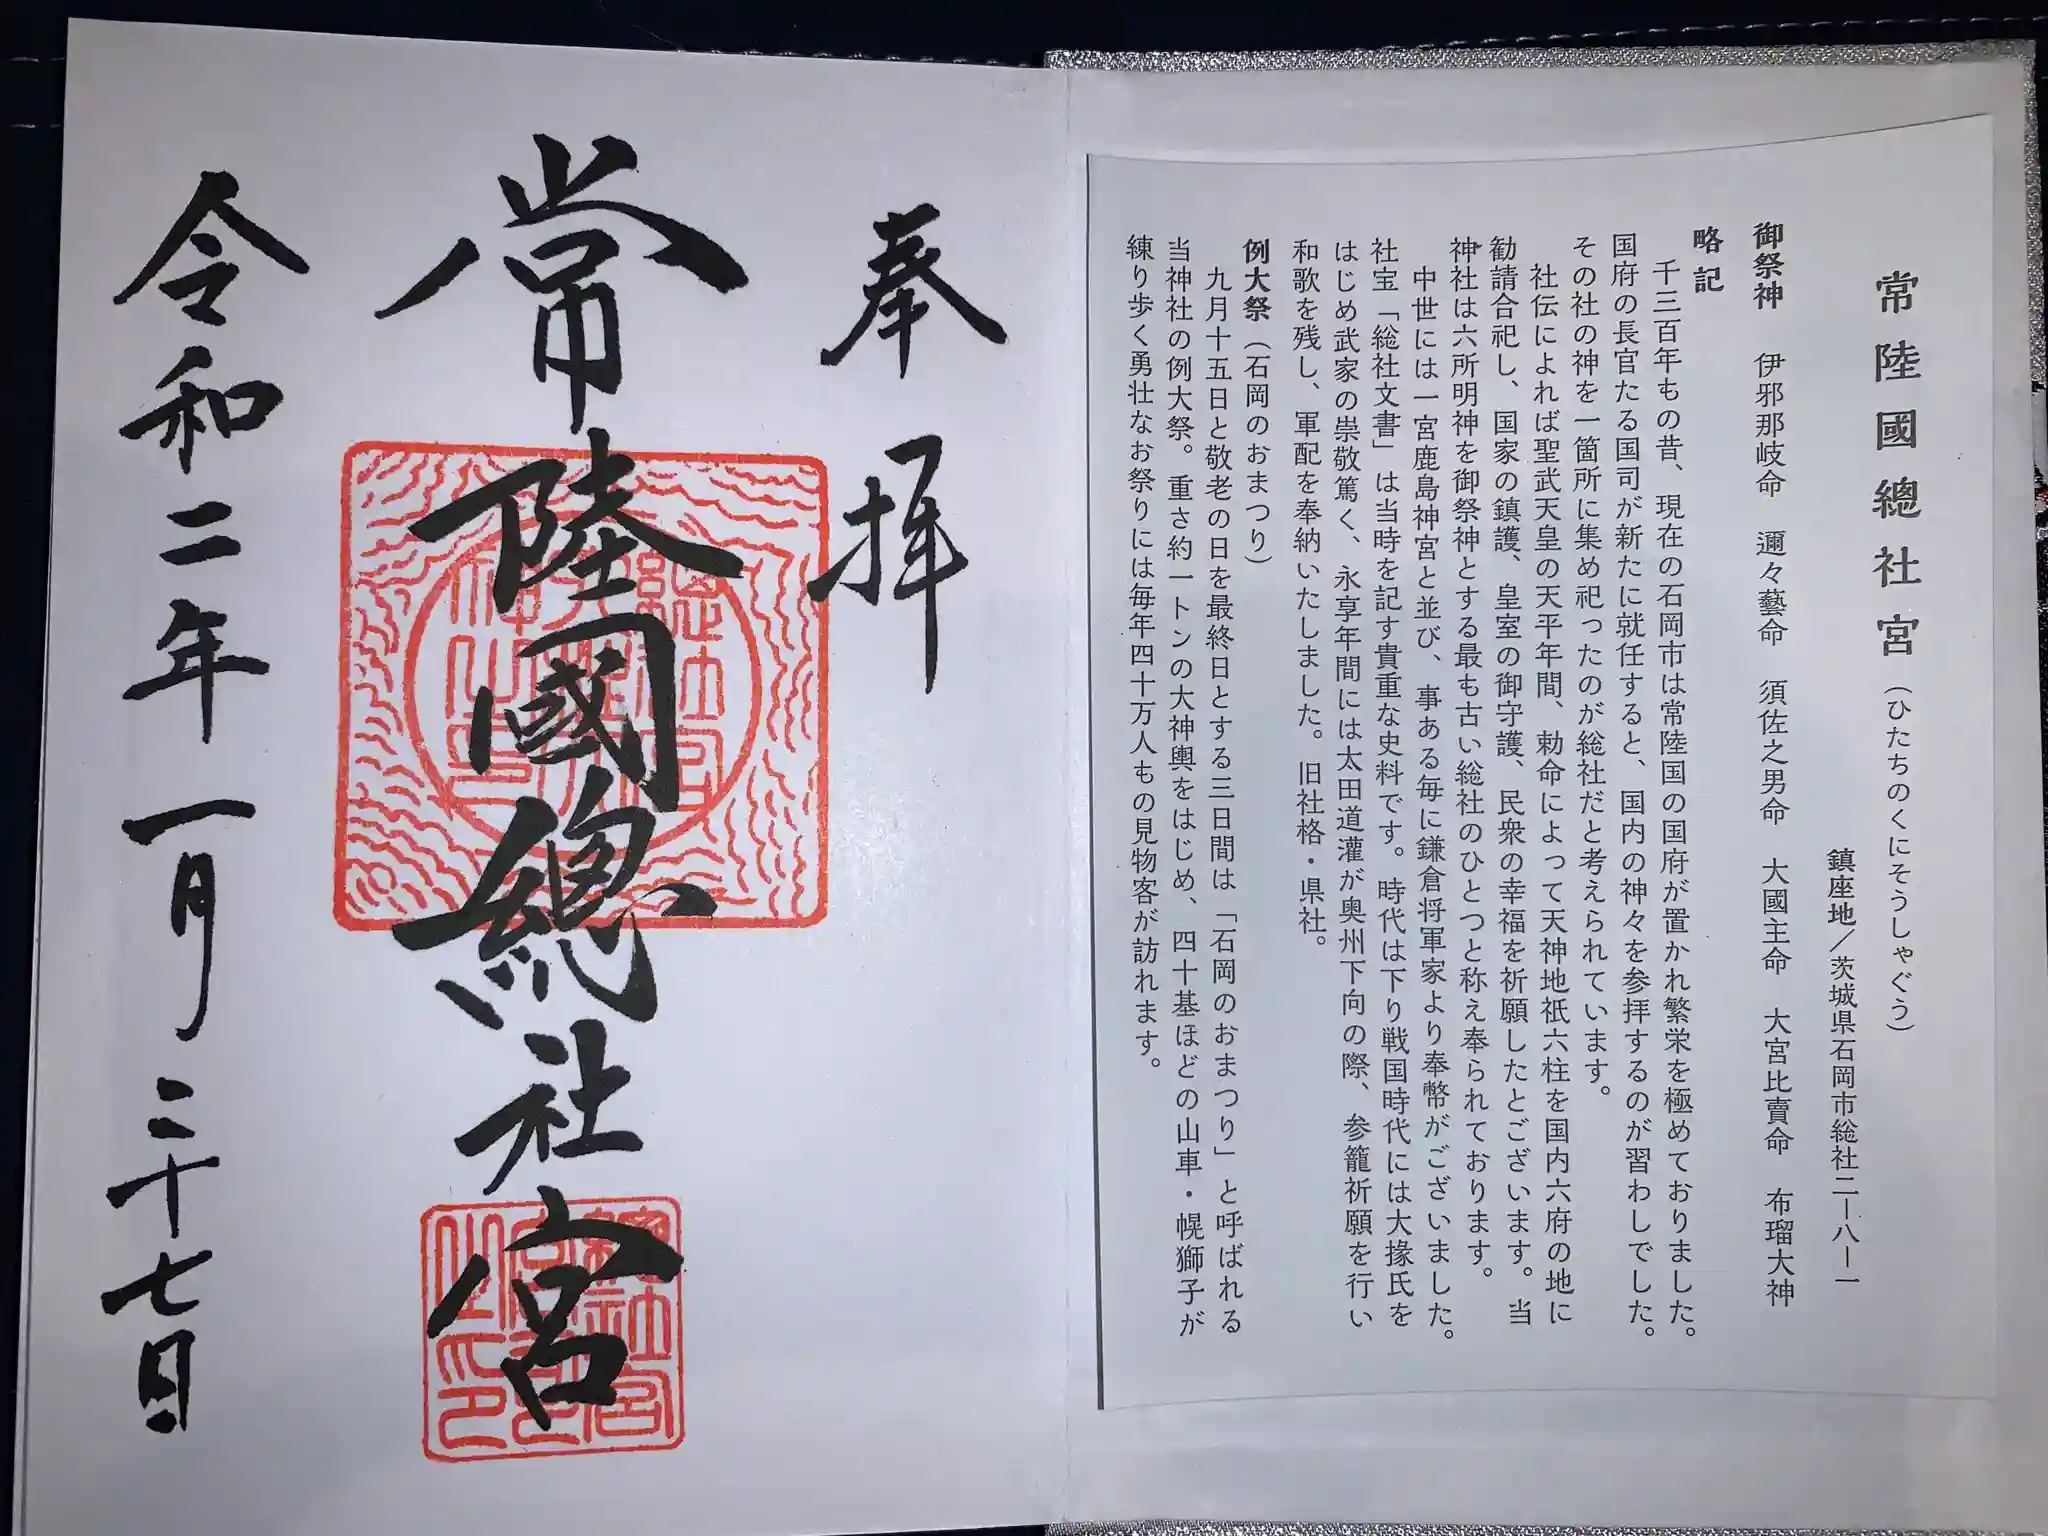 常陸國總社宮（ひたちのくにそうしゃぐう）
鎮座地／茨城県石岡市総社二ー八ー一
御祭神　伊邪那岐命　邇々藝命　須佐之男命　大國主命　大宮比賣命　布瑠大神
略記
千三百年もの昔、現在の石岡市は常陸国の国府が置かれ繁栄を極めておりました。
国府の長官たる国司が新たに就任すると、国内の神々を参拝するのが習わしでした。
その社の神を一箇所に集め祀ったのが総社だと考えられています。
社伝によれば聖武天皇の天平年間、勅命によって天神地祇六柱を国内六府の地に
勧請合祀し、国家の鎮護、皇室の御守護、民衆の幸福を祈願したとございます。当
神社は六所明神を御祭神とする最も古い総社のひとつと称え奉られております。
中世には一宮鹿島神宮と並び、事ある毎に鎌倉将軍家より奉幣がございました。
社宝「総社文書」は当時を記す貴重な史料です。時代は下り戦国時代には大掾氏を
はじめ武家の崇敬篤く、永享年間には太田道灌が奥州下向の際、参籠祈願を行い
和歌を残し、軍配を奉納いたしました。旧社格・県社。
例大祭（石岡のおまつり）
九月十五日と敬老の日を最終日とする三日間は「石岡のおまつり」と呼ばれる
当神社の例大祭。重さ約一トンの大神輿をはじめ、四十基ほどの山車・幌獅子が
練り歩く勇壮なお祭りには毎年四十万人もの見物客が訪れます。
奉拝
常陸國總社宮
總社宮之印
令和二年一月二十七日